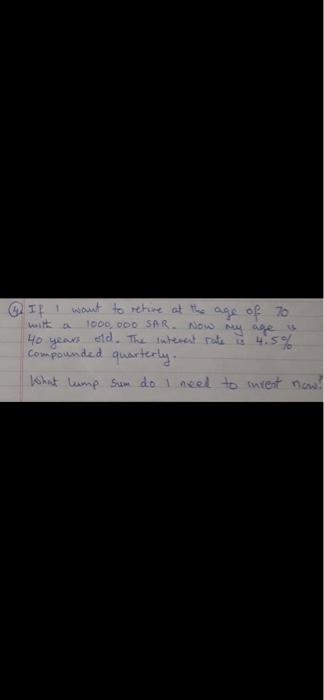 4. If I want to retire at the age of 70
with a 1000,000 SAR. Now my age is
40 years old. The interest rate is 4.5%
compounded quarterly.
What lump sum do I need to invest now?